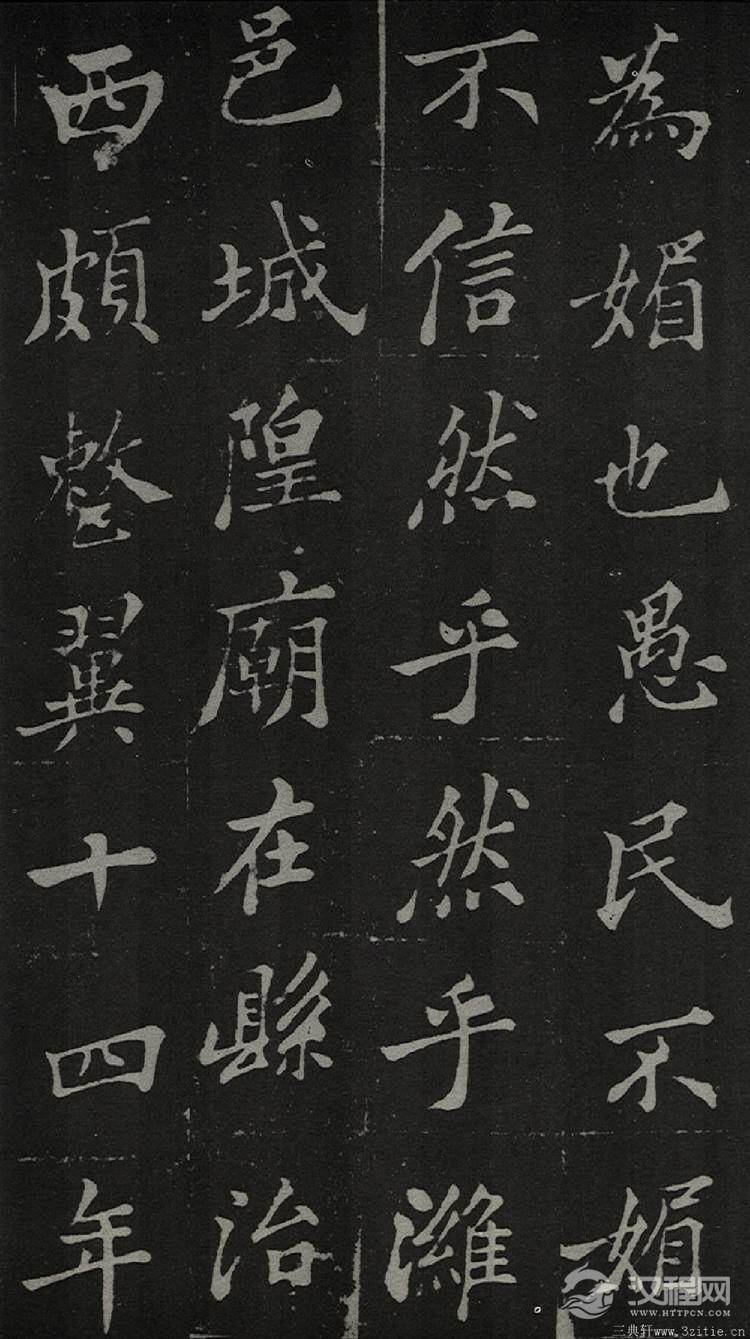 為媚也愚民不媚
不信然乎然乎濰
邑城隍廟在縣治
西頗整翼十四年
汉程网
WWW.HTTPCN.COM
三典轩www.3zitie.cn